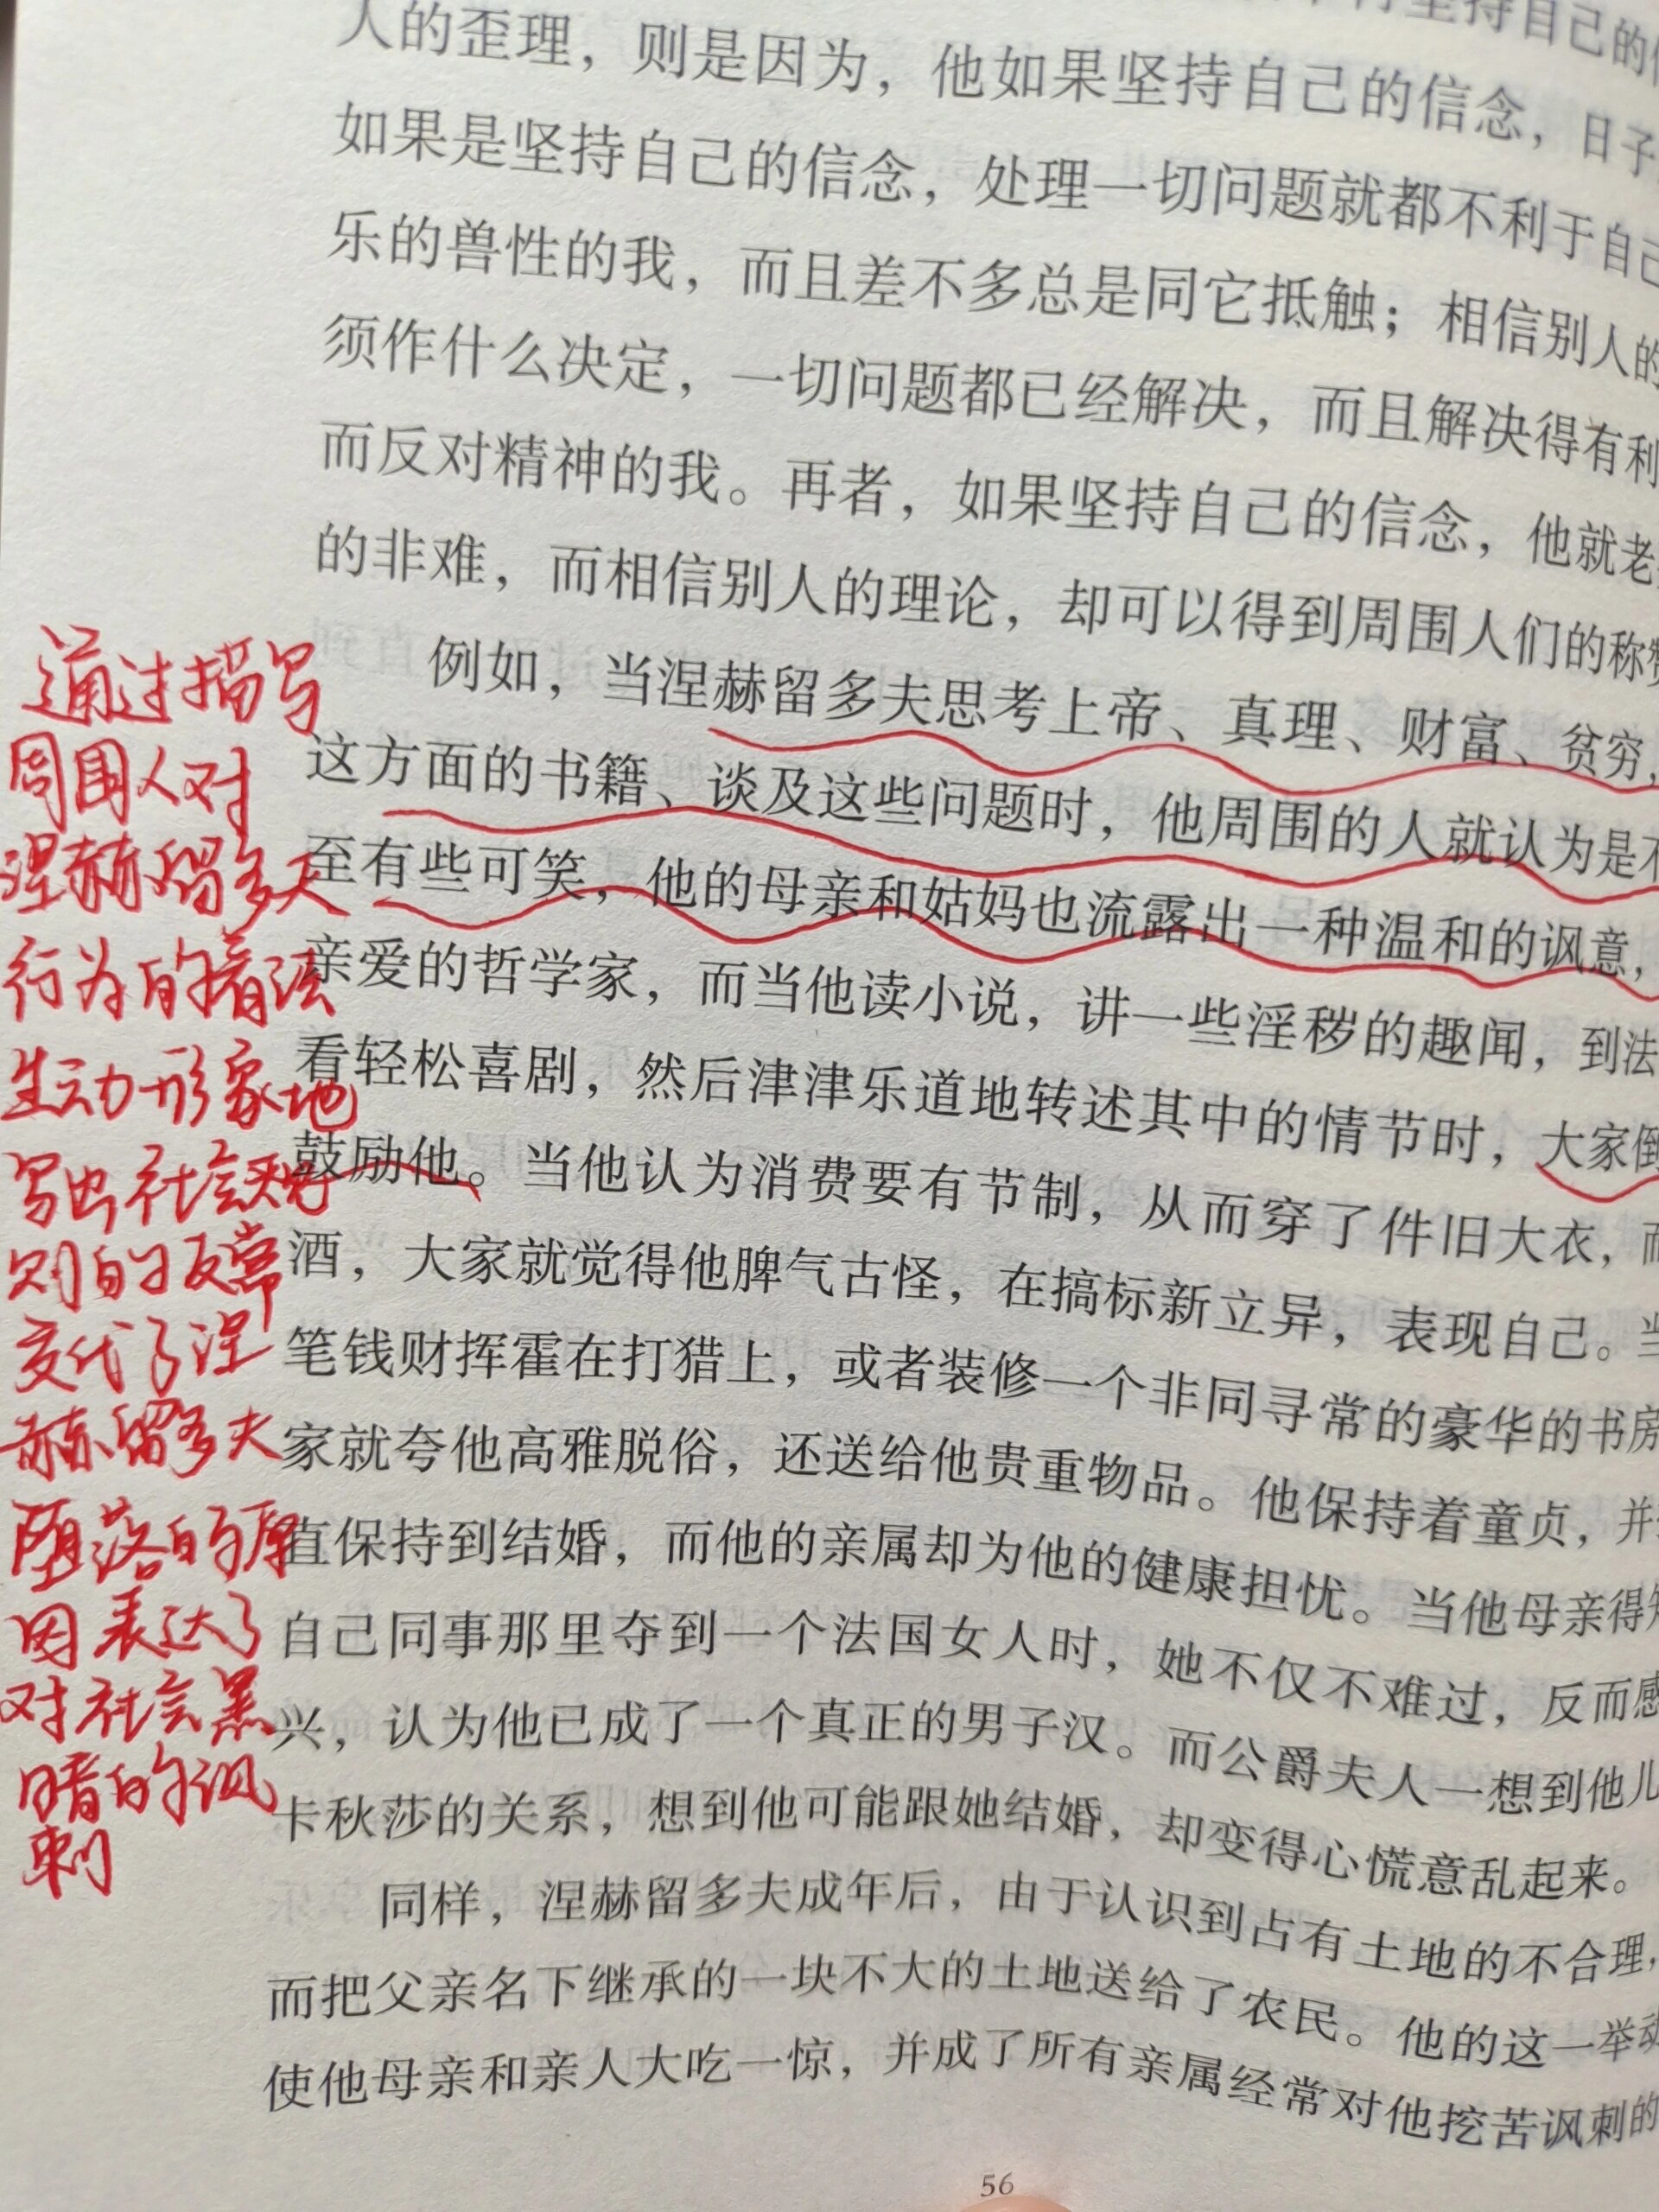 坚持自己的
人的歪理，则是因为，他如果坚持自己的信念，日子
如果是坚持自己的信念，处理一切问题就都不利于自己
乐的兽性的我，而且差不多总是同它抵触；相信别人的
须作什么决定，一切问题都已经解决，而且解决得有利
而反对精神的我。再者，如果坚持自己的信念，他就老
的非难，而相信别人的理论，却可以得到周围人们的称赞
例如，当涅赫留多夫思考上帝、真理、财富、贫穷，
这方面的书籍、谈及这些问题时，他周围的人就认为是不
至有些可笑，他的母亲和姑妈也流露出一种温和的讽意，
亲爱的哲学家，而当他读小说，讲一些淫秽的趣闻，到法
看轻松喜剧，然后津津乐道地转述其中的情节时，大家倒
鼓励他。当他认为消费要有节制，从而穿了件旧大衣，而
酒，大家就觉得他脾气古怪，在搞标新立异，表现自己。当
笔钱财挥霍在打猎上，或者装修一个非同寻常的豪华的书房
家就夸他高雅脱俗，还送给他贵重物品。他保持着童贞，并
直保持到结婚，而他的亲属却为他的健康担忧。当他母亲得知
自己同事那里夺到一个法国女人时，她不仅不难过，反而感
兴，认为他已成了一个真正的男子汉。而公爵夫人一想到他儿
卡秋莎的关系，想到他可能跟她结婚，却变得心慌意乱起来。
同样，涅赫留多夫成年后，由于认识到占有土地的不合理，
而把父亲名下继承的一块不大的土地送给了农民。他的这一举动
使他母亲和亲人大吃一惊，并成了所有亲属经常对他挖苦讽刺的
56
通过描写
周围人对
涅赫留多夫
行为的看法
生动形象地
写出社会规
则的反常
交代了涅
赫留多夫
堕落的原
因表达了
对社会黑
暗的讽
刺